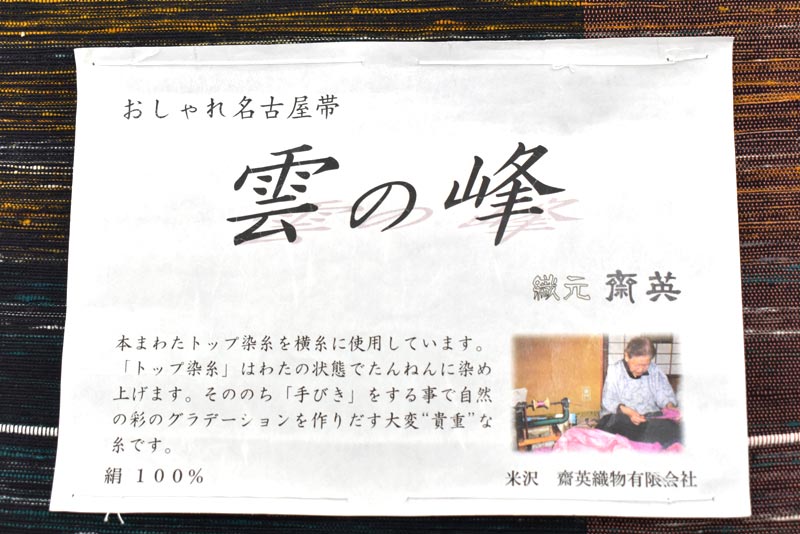 おしゃれ名古屋帯
雲の峰
織元 齋英
本まわたトップ染糸を横糸に使用しています。
「トップ染糸」はわたの状態でたんねんに染め
上げます。そののち「手びき」をする事で自然
の彩のグラデーションを作りだす大変“貴重”な
糸です。
絹 １００％
米沢　齋英織物有限会社